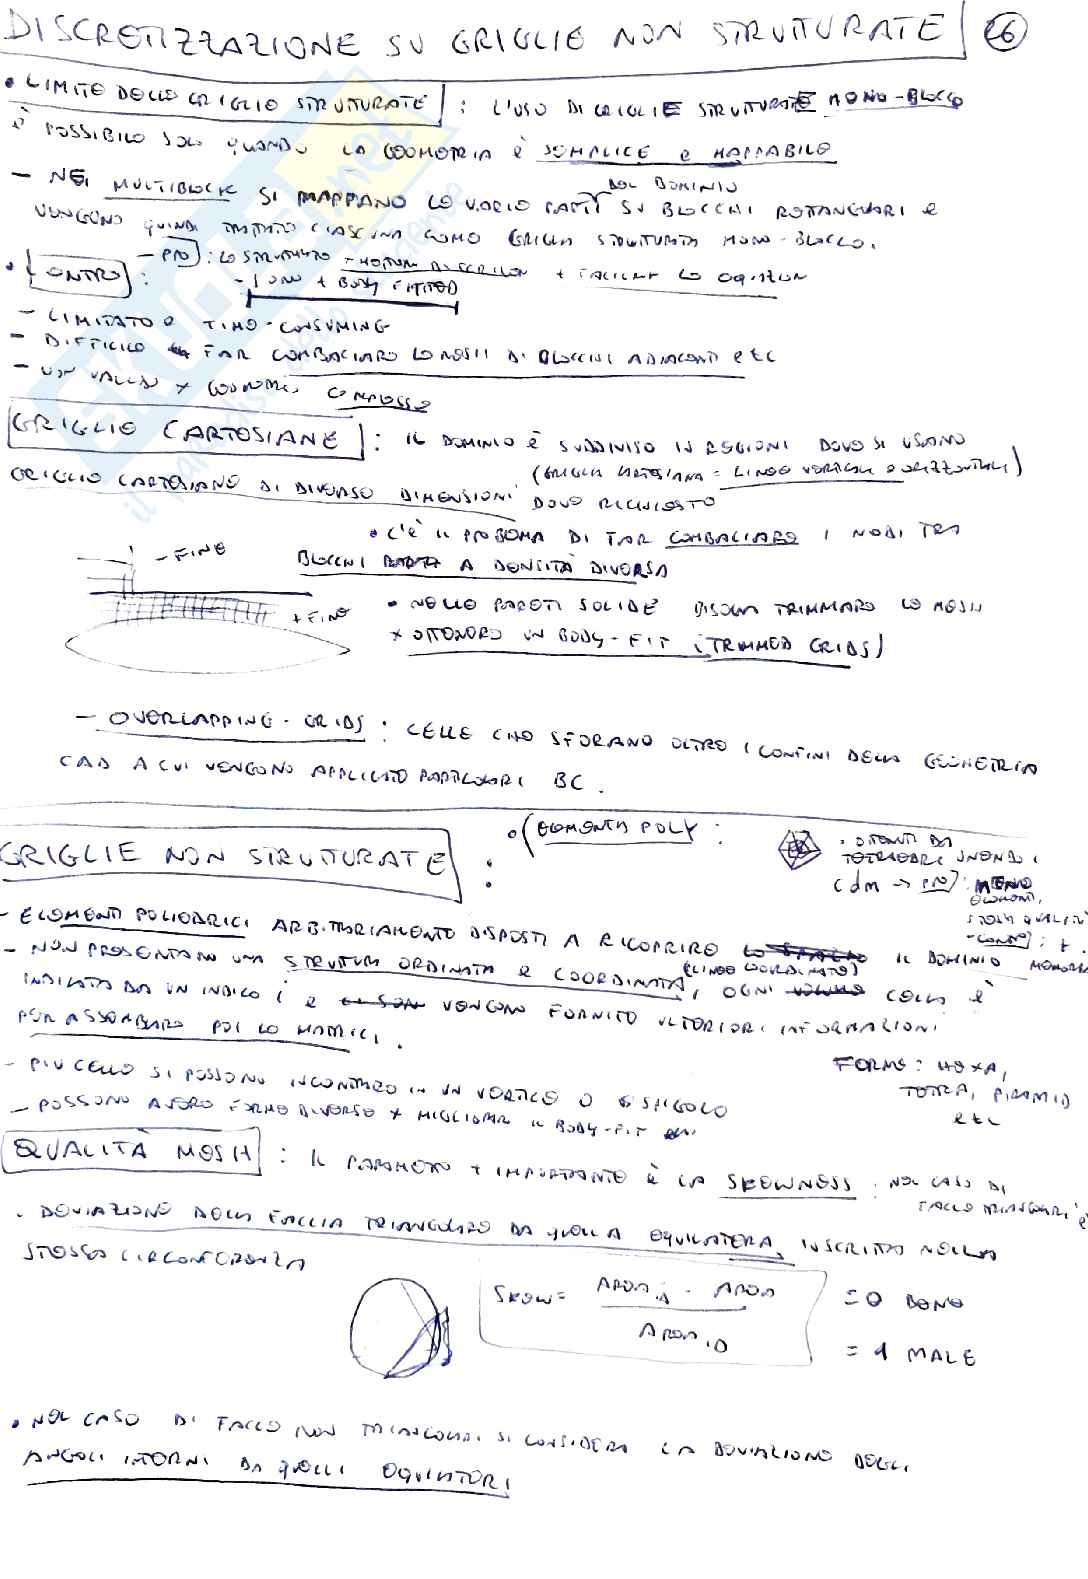 DISCRETIZZAZIONE SU GRIGLIE NON STRUTTURATE 26
• LIMITE DELLE GRIGLIE STRUTTURATE : L'USO DI GRIGLIE STRUTTURATE MONO-BLOCCO
È POSSIBILE SOLO QUANDO LA GEOMETRIA È SEMPLICE E MAPPABILE
- NEI MULTIBLOCK SI MAPPANO LE VARIE PARTI DEL DOMINIO SU BLOCCHI RETTANGOLARI E
VENGONO QUINDI TRATTATE CIASCUNA COME GRIGLIA STRUTTURATA MONO-BLOCCO.
- PRO : LE STRUTTURATE
• CONTRO : - SONO + BODY FITTED
- LIMITATO E TIME-CONSUMING
- DIFFICILE FAR COMBACIARE LE MESH DI BLOCCHI ADIACENTI ETC
- NON VALIDO X GEOMETRIE COMPLESSE
GRIGLIE CARTESIANE : IL DOMINIO È SUDDIVISO IN REGIONI DOVE SI USANO
(GRIGLIA CARTESIANA = LINEE VERTICALI E ORIZZONTALI)
GRIGLIE CARTESIANE DI DIVERSE DIMENSIONI DOVE RICHIESTO
• C'È IL PROBLEMA DI FAR COMBACIARE I NODI TRA
BLOCCHI A DENSITÀ DIVERSA
- FINE
+ FINE
• NELLE PARETI SOLIDE BISOGNA TRIMMARE LE MESH
X OTTENERE UN BODY-FIT (TRIMMED GRIDS)
- OVERLAPPING-GRIDS : CELLE CHE SFORANO OLTRE I CONFINI DELLA GEOMETRIA
CAD A CUI VENGONO APPLICATE PARTICOLARI BC.
GRIGLIE NON STRUTTURATE :
• ELEMENTI POLY :
• OTTENUTI DA
TETRAEDRI UNENDO I
cdm → PRO : MENO
ELEMENTI,
STESSA QUALITÀ
- CONTRO : +
MEMORIA
- ELEMENTI POLIEDRICI ARBITRARIAMENTE DISPOSTI A RICOPRIRE IL DOMINIO
- NON PRESENTANO UNA STRUTTURA ORDINATA E COORDINATA (LINEE COORDINATE), OGNI CELLA È
INDICATA DA UN INDICE i E VENGONO FORNITE ULTERIORI INFORMAZIONI
PER ASSEMBLARE POI LE MATRICI.
- PIÙ CELLE SI POSSONO INCONTRARE IN UN VERTICE O SPIGOLO
- POSSONO AVERE FORME DIVERSE X MIGLIORAR IL BODY-FIT
FORME : HEXA,
TETRA, PIRAMID
ETC
QUALITÀ MESH : IL PARAMETRO + IMPORTANTE È LA SKEWNESS : NEL CASO DI
FACCE TRIANGOLARI È
. DEVIAZIONE DELLA FACCIA TRIANGOLARE DA QUELLA EQUILATERA, INSCRITTA NELLA
STESSA CIRCONFERENZA
SKEW = AREA ID - AREA
AREA ID
= 0 BENE
= 1 MALE
• NEL CASO DI FACCE NON TRIANGOLARI SI CONSIDERA LA DEVIAZIONE DEGLI
ANGOLI INTERNI DA QUELLI EQUILATERI